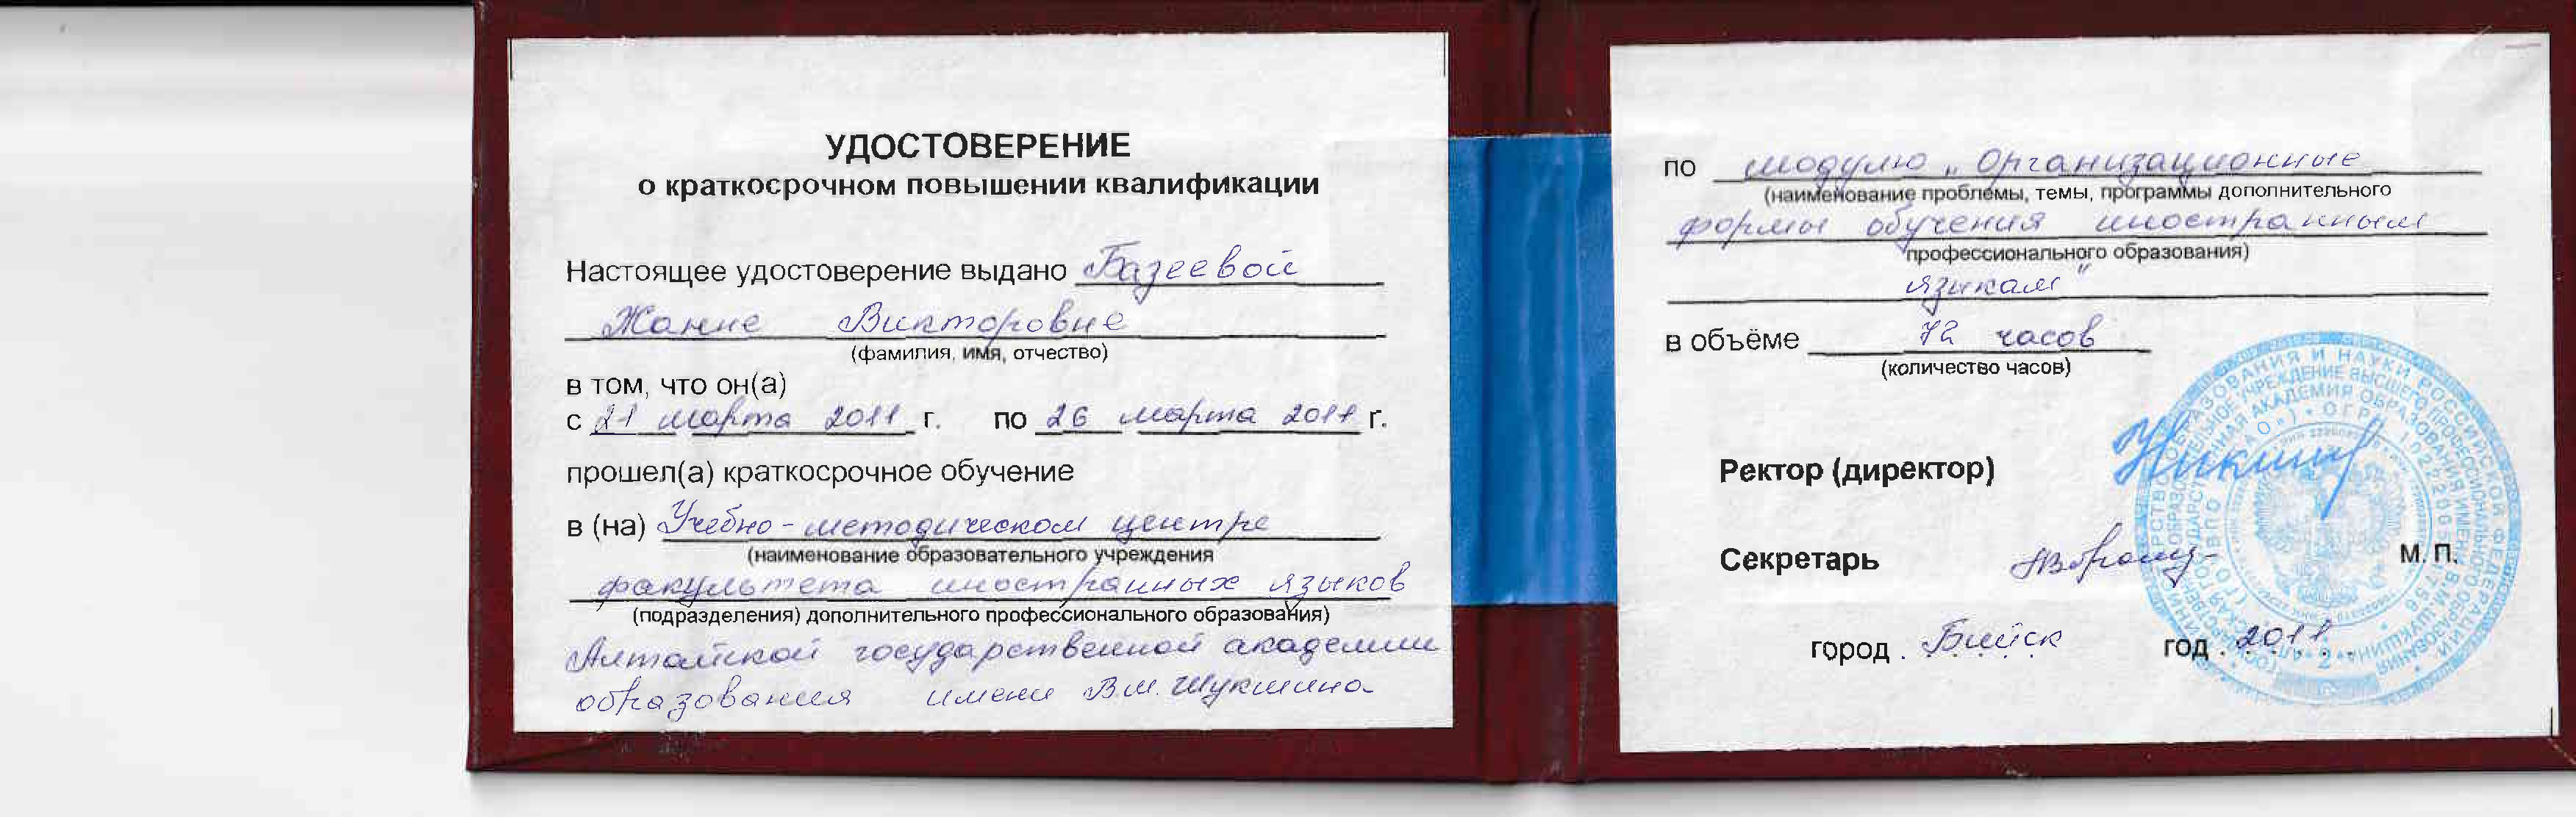 УДОСТОВЕРЕНИЕ
о краткосрочном повышении квалификации
Настоящее удостоверение выдано Базеевой
Жанне Викторовне
(фамилия, имя, отчество)
в том, что он(а)
с 21 марта 2011 г. по 26 марта 2011 г.
прошел(а) краткосрочное обучение
в (на) Учебно-методическом центре
(наименование образовательного учреждения
факультета иностранных языков
(подразделения) дополнительного профессионального образования)
Алтайской государственной академии
образования имени В.М. Шукшина
по модулю „Организационные
(наименование проблемы, темы, программы дополнительного
формы обучения иностранным
профессионального образования)
языкам"
в объёме 72 часов
(количество часов)
Ректор (директор)
Секретарь
М. П.
город Бийск год 2011